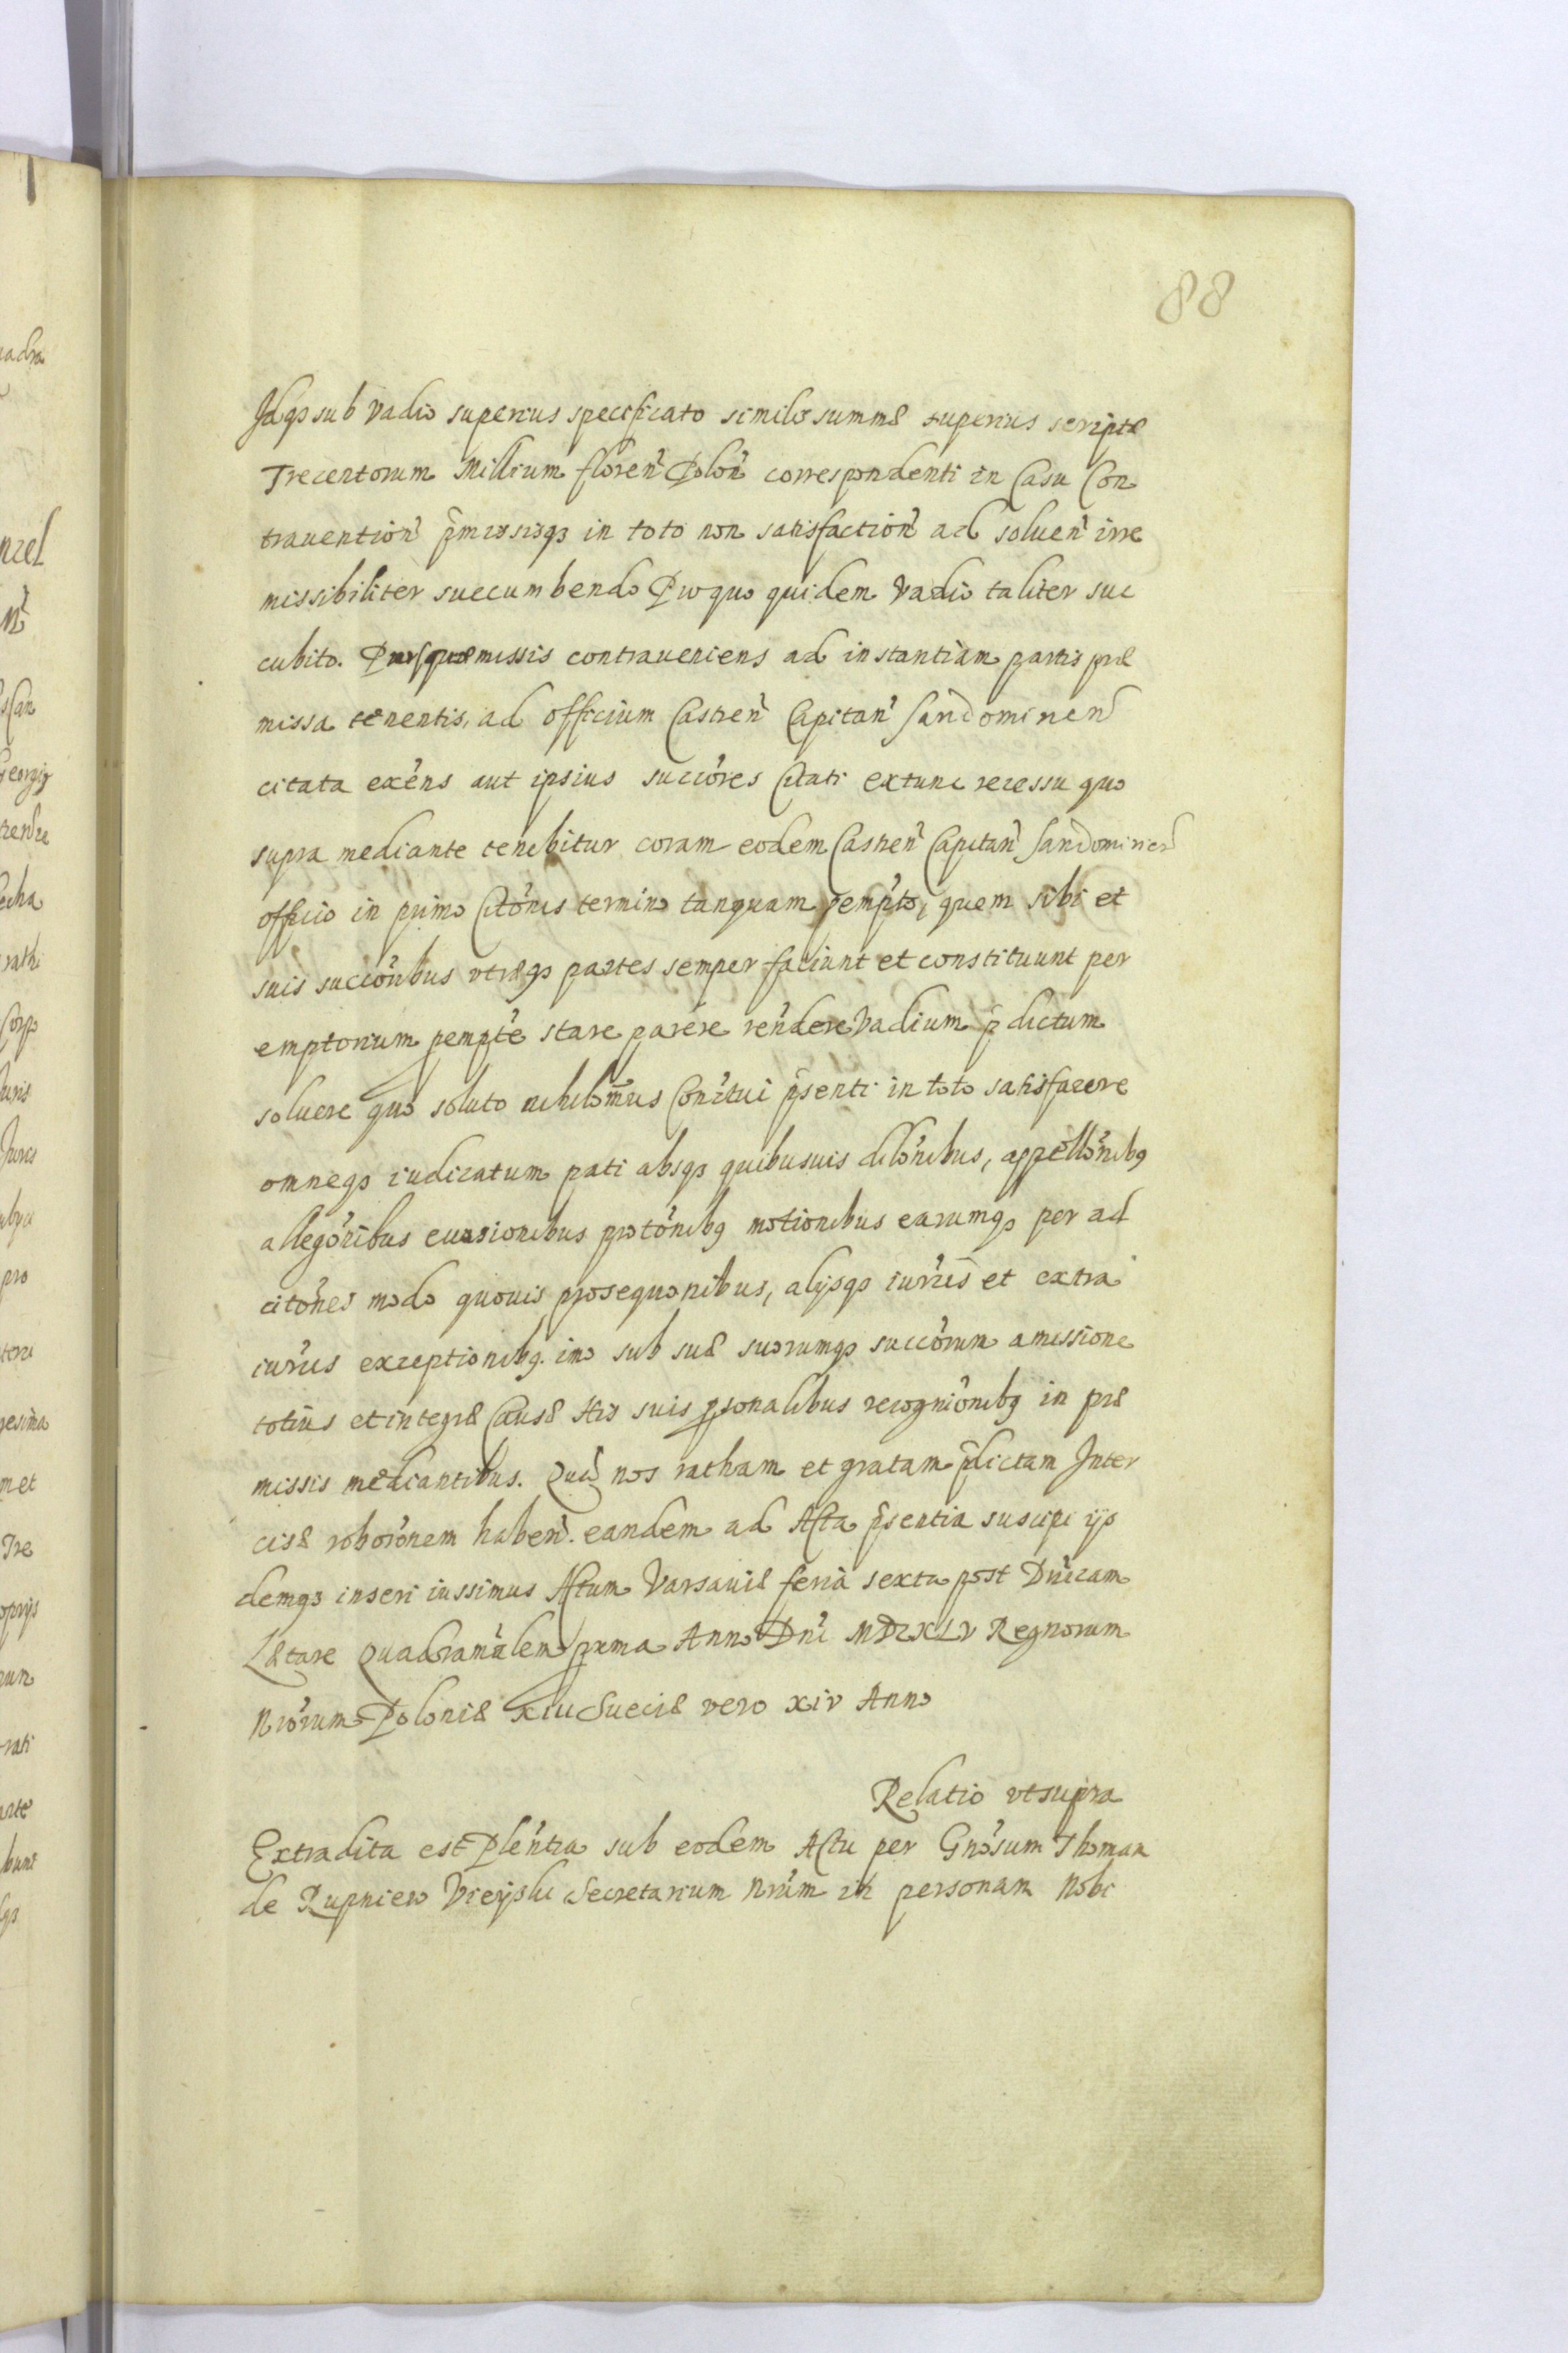 88
Idq3 sub Vadio superius specificato similis summæ superius scriptæ
Trecentorum Millium floren̄ Polon̄ correspondenti in Casu Con
trauention̄ p̄missisq3 in toto non satisfaction̄ ad soluen̄ irre
missibiliter succumbendo Pro quo quidem Vadio taliter suc
cubito. missis contraueniens ad instantiam partis præ
missa tenentis, ad officium Castren̄ Capitan̄ Sandominen̄
citata exēns aut ipsius succōres Citati extunc recessu quo
supra mediante tenebitur coram eodem Castren̄ Capitan̄ Sandominen̄
officio in primo Citōnis termino tanquam pemp̄to, quem sibi et
suis succōribus vtræq3 partes semper faciunt et constituunt per
emptorium pemp̄te stare parere rēndere Vadium p̄dictum
soluere quo soluto nihilom̄us Conr̄tui p̄senti in toto satisfacere
omneq3 iudicatum pati absq3 quibusuis dilōnibus, appellōnibꝰ
allegōnibus euasionibus protōnibꝰ motionibus earumq3 per ad
citōnes modo quouis prosequōnibus, alijsq3 iur̄iis et extra
iur̄iis exceptionibꝰ. imo sub suæ suorumq3 succōrum amissione
totius et integræ Causæ His suis personalibus recogniōnibꝰ in præ
missis mediantibus. Quā nos ratham et gratam p̄dictam Inter
cisæ roborōnem haben̄. eandem ad Acta p̄sentia suscipi ijs
demq3 inseri iussimus Actum Varsauiæ feria sexta post Dn̄icam
Lætare Quadrām̄alem prxma Anno Dn̄i MDCXLV Regnorum
Nrōrum Poloniæ xiii Sueciæ vero xiv Anno
Relatio vt supra
Extradita est Plēn̄tia sub eodem Actu per Gn̄osum Thomam
de Rupniew Vieyski Secretarium Nr̄um in personam Nobi